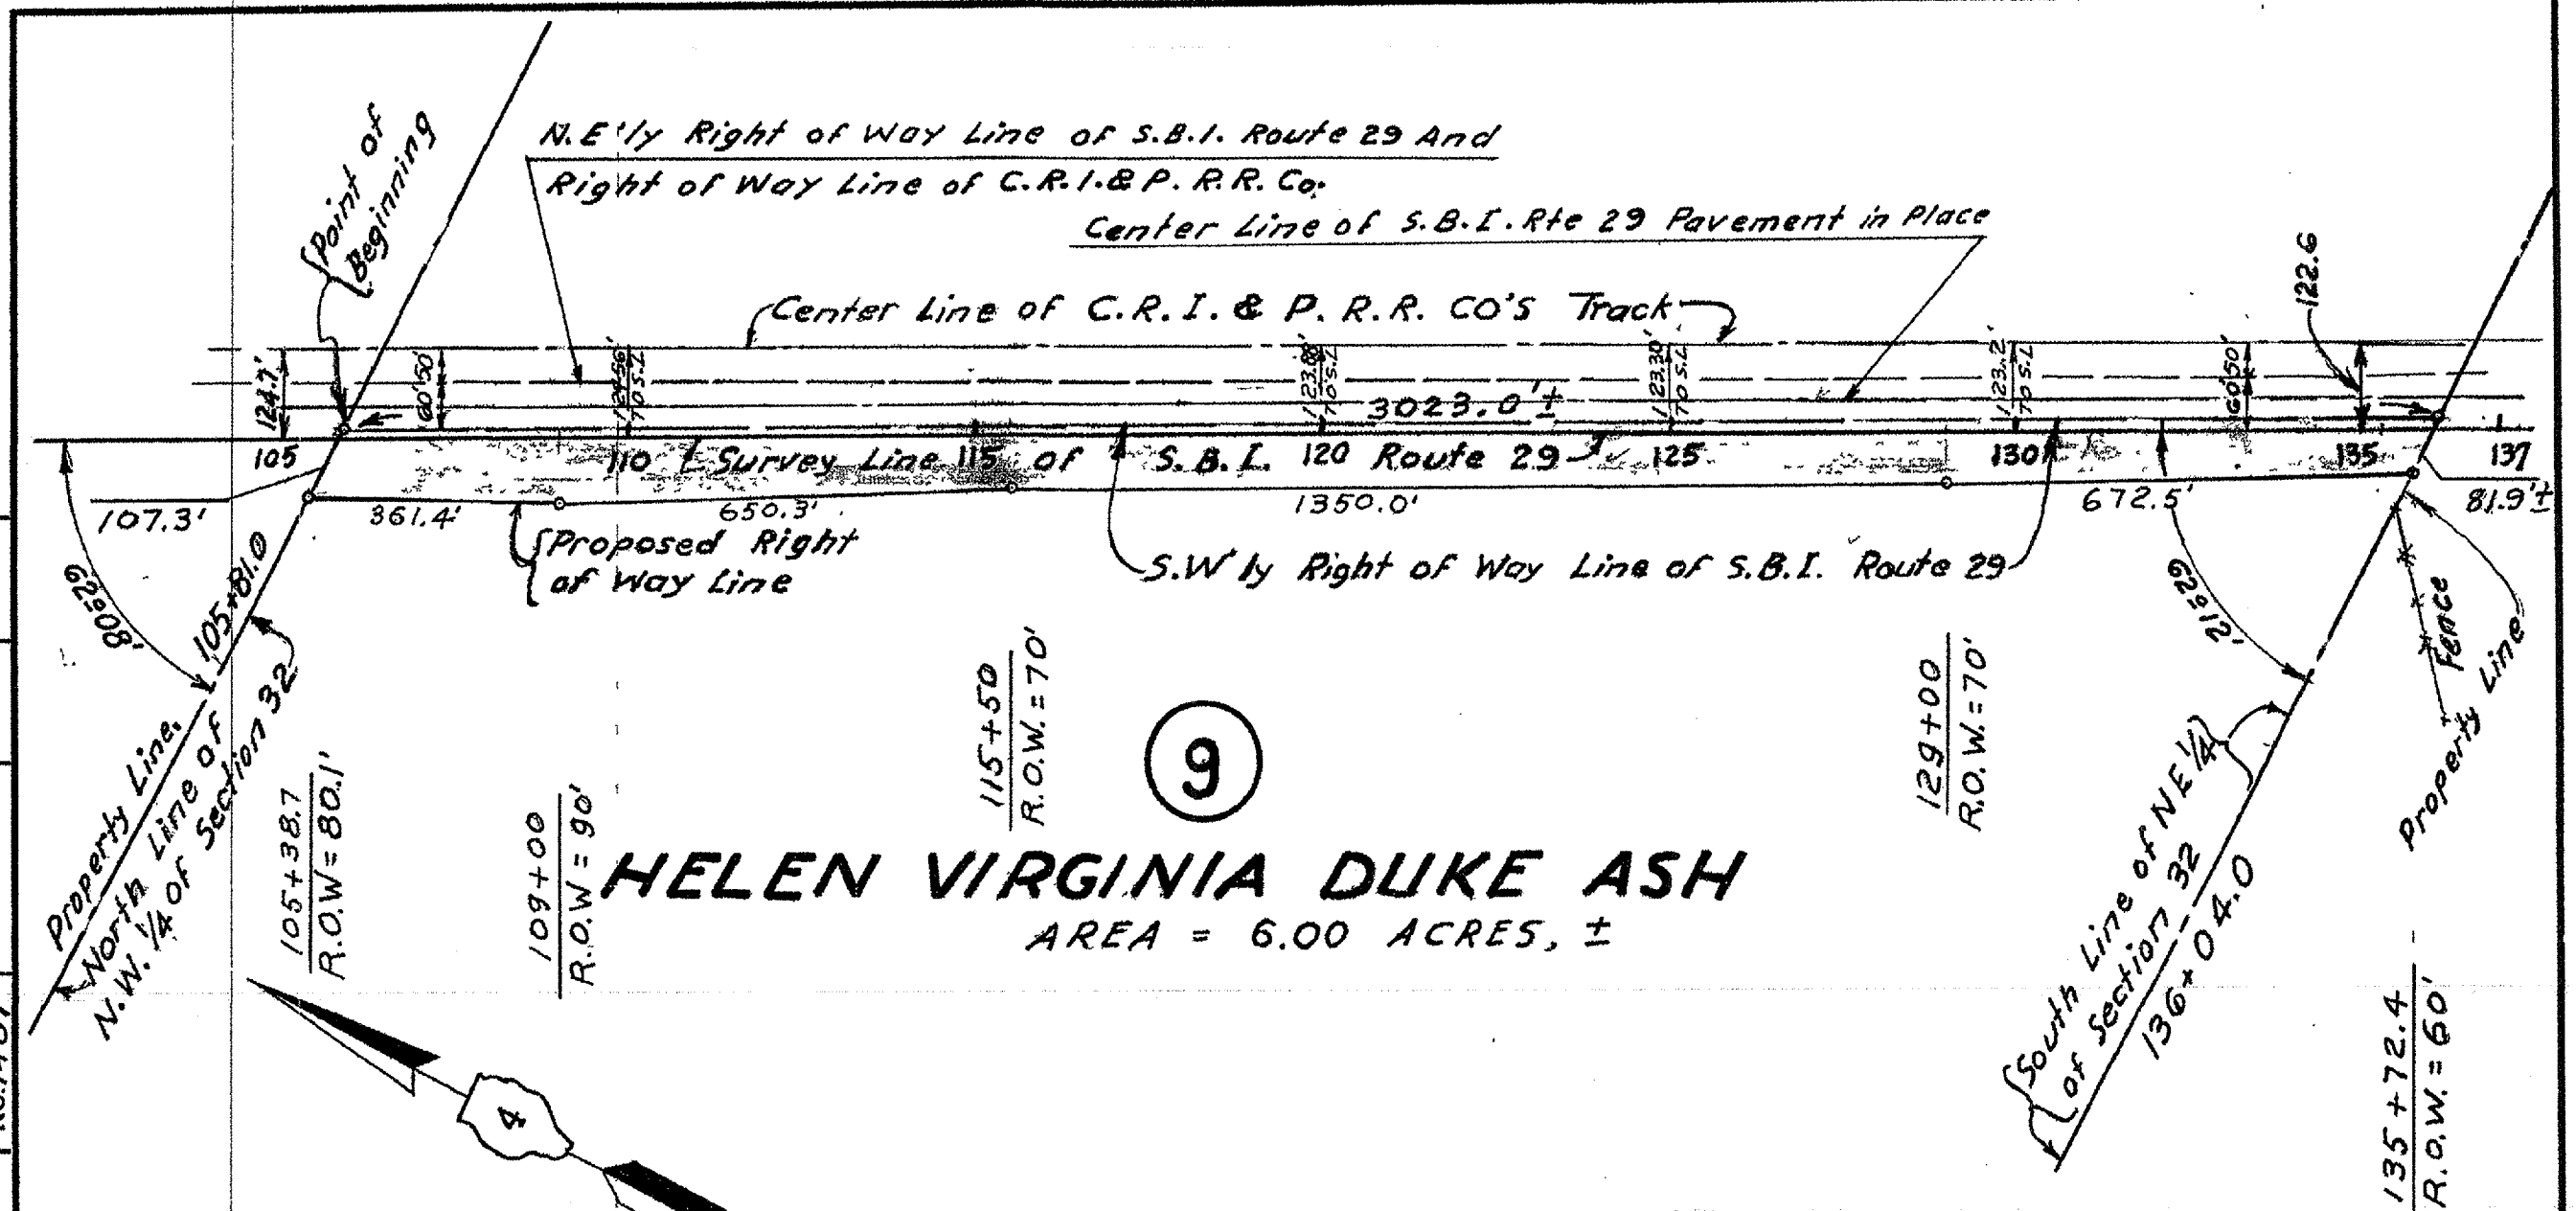 Point of
Beginning
N.E'ly Right of Way Line of S.B.I. Route 29 And
Right of Way Line of C.R.I. & P. R.R. Co.
Center Line of S.B.I. Rte 29 Pavement in Place
Center Line of C.R.I. & P. R.R. CO'S Track
122.6
124.7'
60' 50'
TO S.L.
123.88'
TO S.L.
123.30'
TO S.L.
123.2'
TO S.L.
60' 50'
3023.0'±
105
110
Survey Line
115
of
S.B.I.
120
Route 29
125
130
135
137
107.3'
361.4'
650.3'
1350.0'
672.5'
81.9'±
Proposed Right
of Way Line
S.W'ly Right of Way Line of S.B.I. Route 29
62°08'
105+81.0
62°12'
Fence
Property Line
Property Line
North Line of
N.W. 1/4 of Section 32
105+38.7
R.O.W = 80.1'
109+00
R.O.W = 90'
115+50
R.O.W. = 70'
129+00
R.O.W. = 70'
9
HELEN VIRGINIA DUKE ASH
AREA = 6.00 ACRES, ±
South Line of NE 1/4
of Section 32
136+04.0
135+72.4
R.O.W. = 60'
4